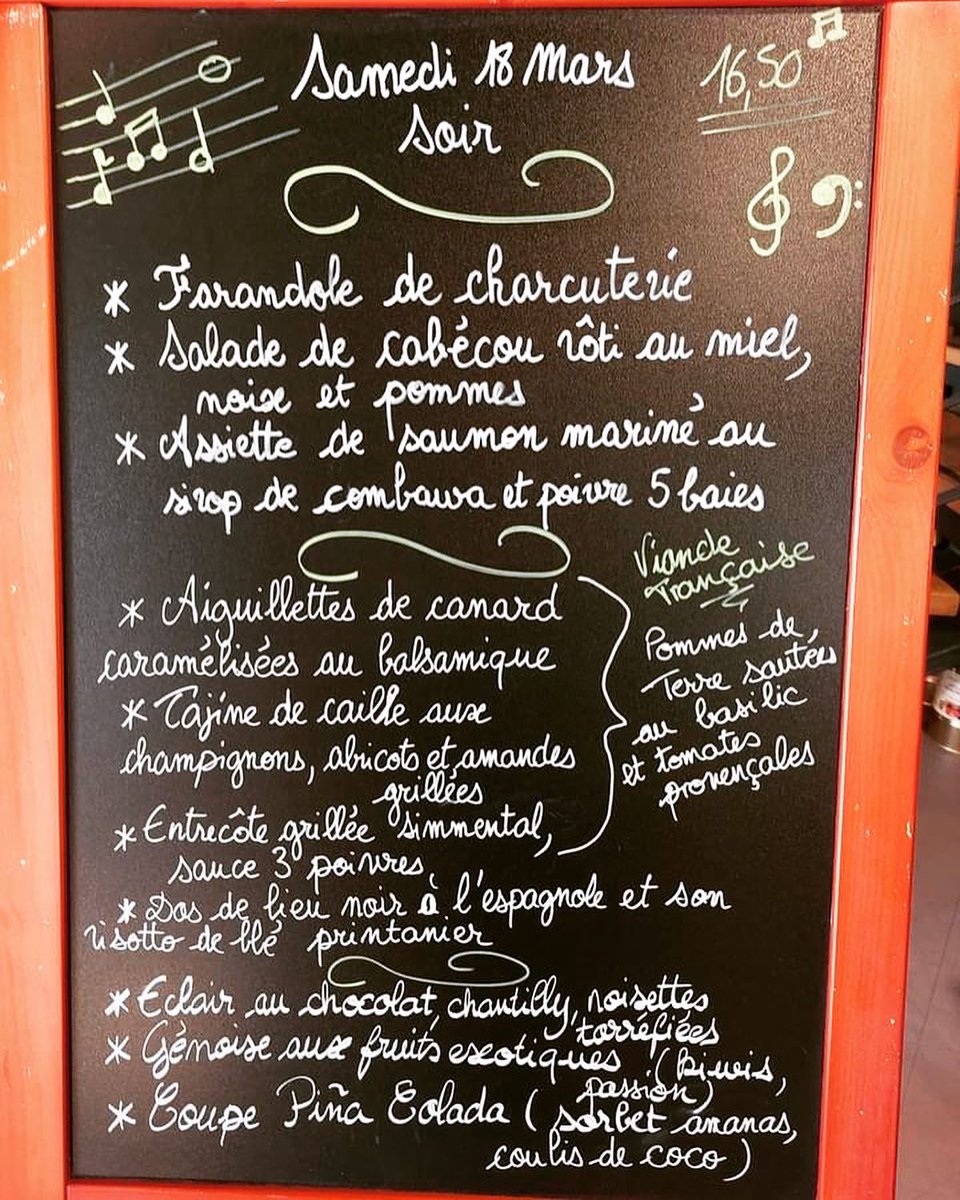 Samedi 18 Mars
Soir
16,50
* Farandole de charcuterie
* Salade de cabécou rôti au miel,
noix et pommes
* Assiette de saumon mariné au
sirop de combawa et poivre 5 baies
* Aiguillettes de canard
caramélisées au balsamique
* Tajine de caille aux
champignons, abricots et amandes
grillées
* Entrecôte grillée simmental,
sauce 3 poivres,
Viande
Française
Pommes de
Terre sautées
au basilic
et tomates
provençales
* Dos de lieu noir à l'espagnole et son
risotto de blé printanier
* Eclair au chocolat, chantilly, noisettes
torréfiées
* Génoise aux fruits exotiques (Kiwis,
passion)
* Coupe Piña Colada (sorbet ananas,
coulis de coco)